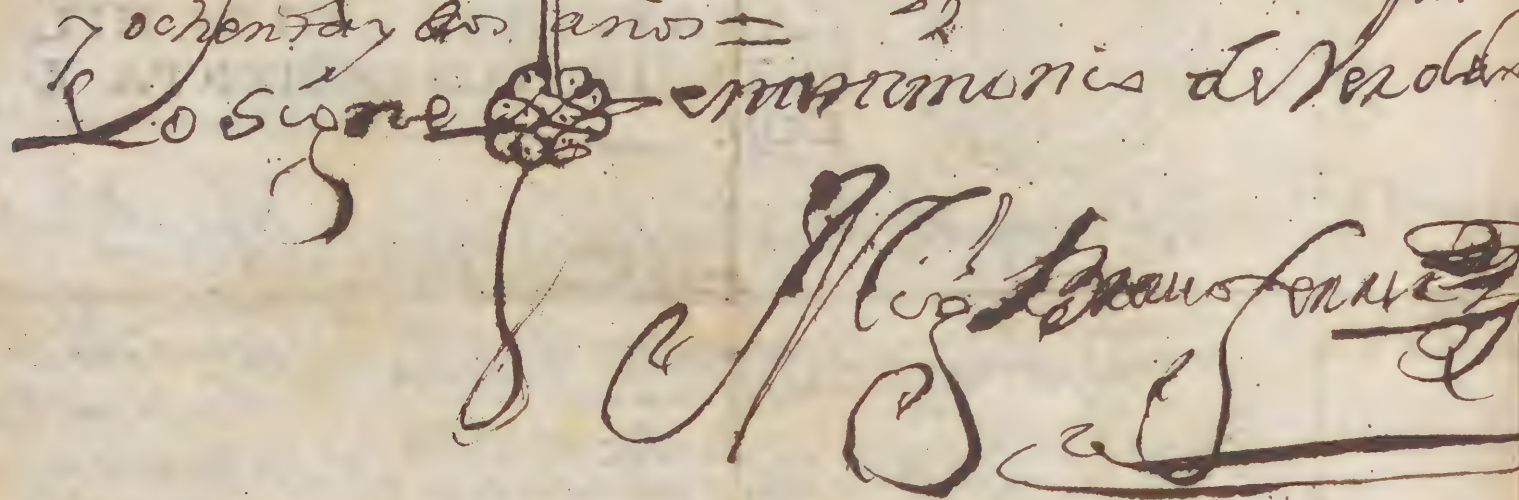 y ochenta y dos años =
Lo signe en testimonio de Verdad
Mig Brauo ferrnz